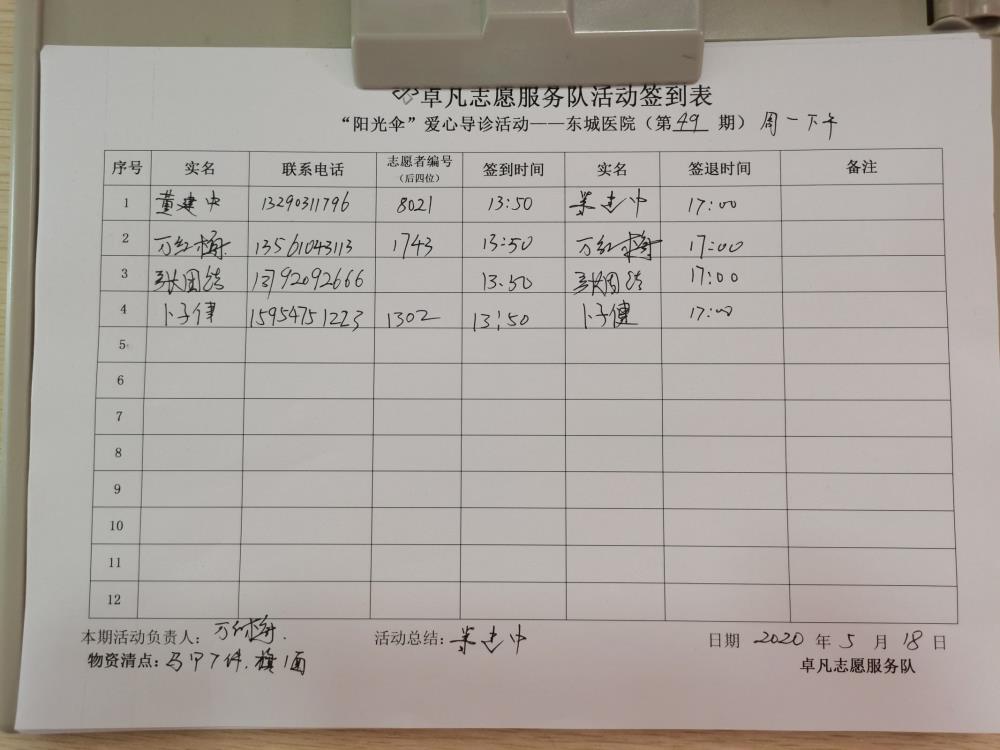 卓凡志愿服务队活动签到表
“阳光伞”爱心导诊活动——东城医院（第 49 期） 周一下午
序号 实名 联系电话 志愿者编号（后四位） 签到时间 实名 签退时间 备注
1 黄建中 13290311796 8021 13:50 建中 17:00
2 万红梅 13561043113 1743 13:50 万红梅 17:00
3 张国 13792092666 13:50 张国 17:00
4 卜子健 15954751223 1302 13:50 卜子健 17:00
5
6
7
8
9
10
11
12
本期活动负责人：万红梅. 活动总结：建中 日期 2020 年 5 月 18 日
物资清点：马甲7件，旗1面 卓凡志愿服务队